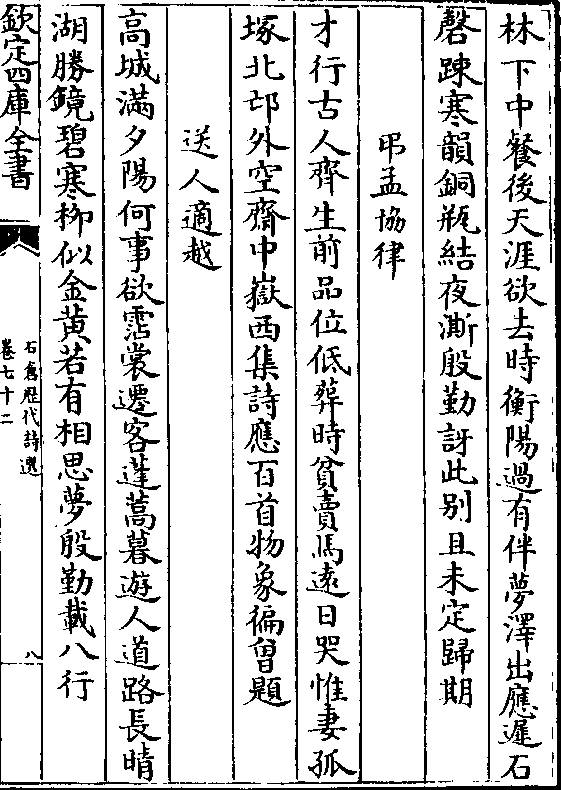 林下中餐後天涯欲去時衡陽過有伴夢澤出應遲石
磬踈寒韻銅瓶結夜澌殷勤訝此别且未定歸期
弔孟協律
才行古人齊生前品位低葬時貧賣馬遠日哭惟妻孤
塚北邙外空齋中嶽西集詩應百首物象徧曽題
送人適越
高城滿夕陽何事欲霑裳遷客蓬蒿暮遊人道路長晴
湖勝鏡碧寒栁似金黄若有相思夢殷勤載八行
欽定四庫全書
石倉歴代詩選
卷七十二
八